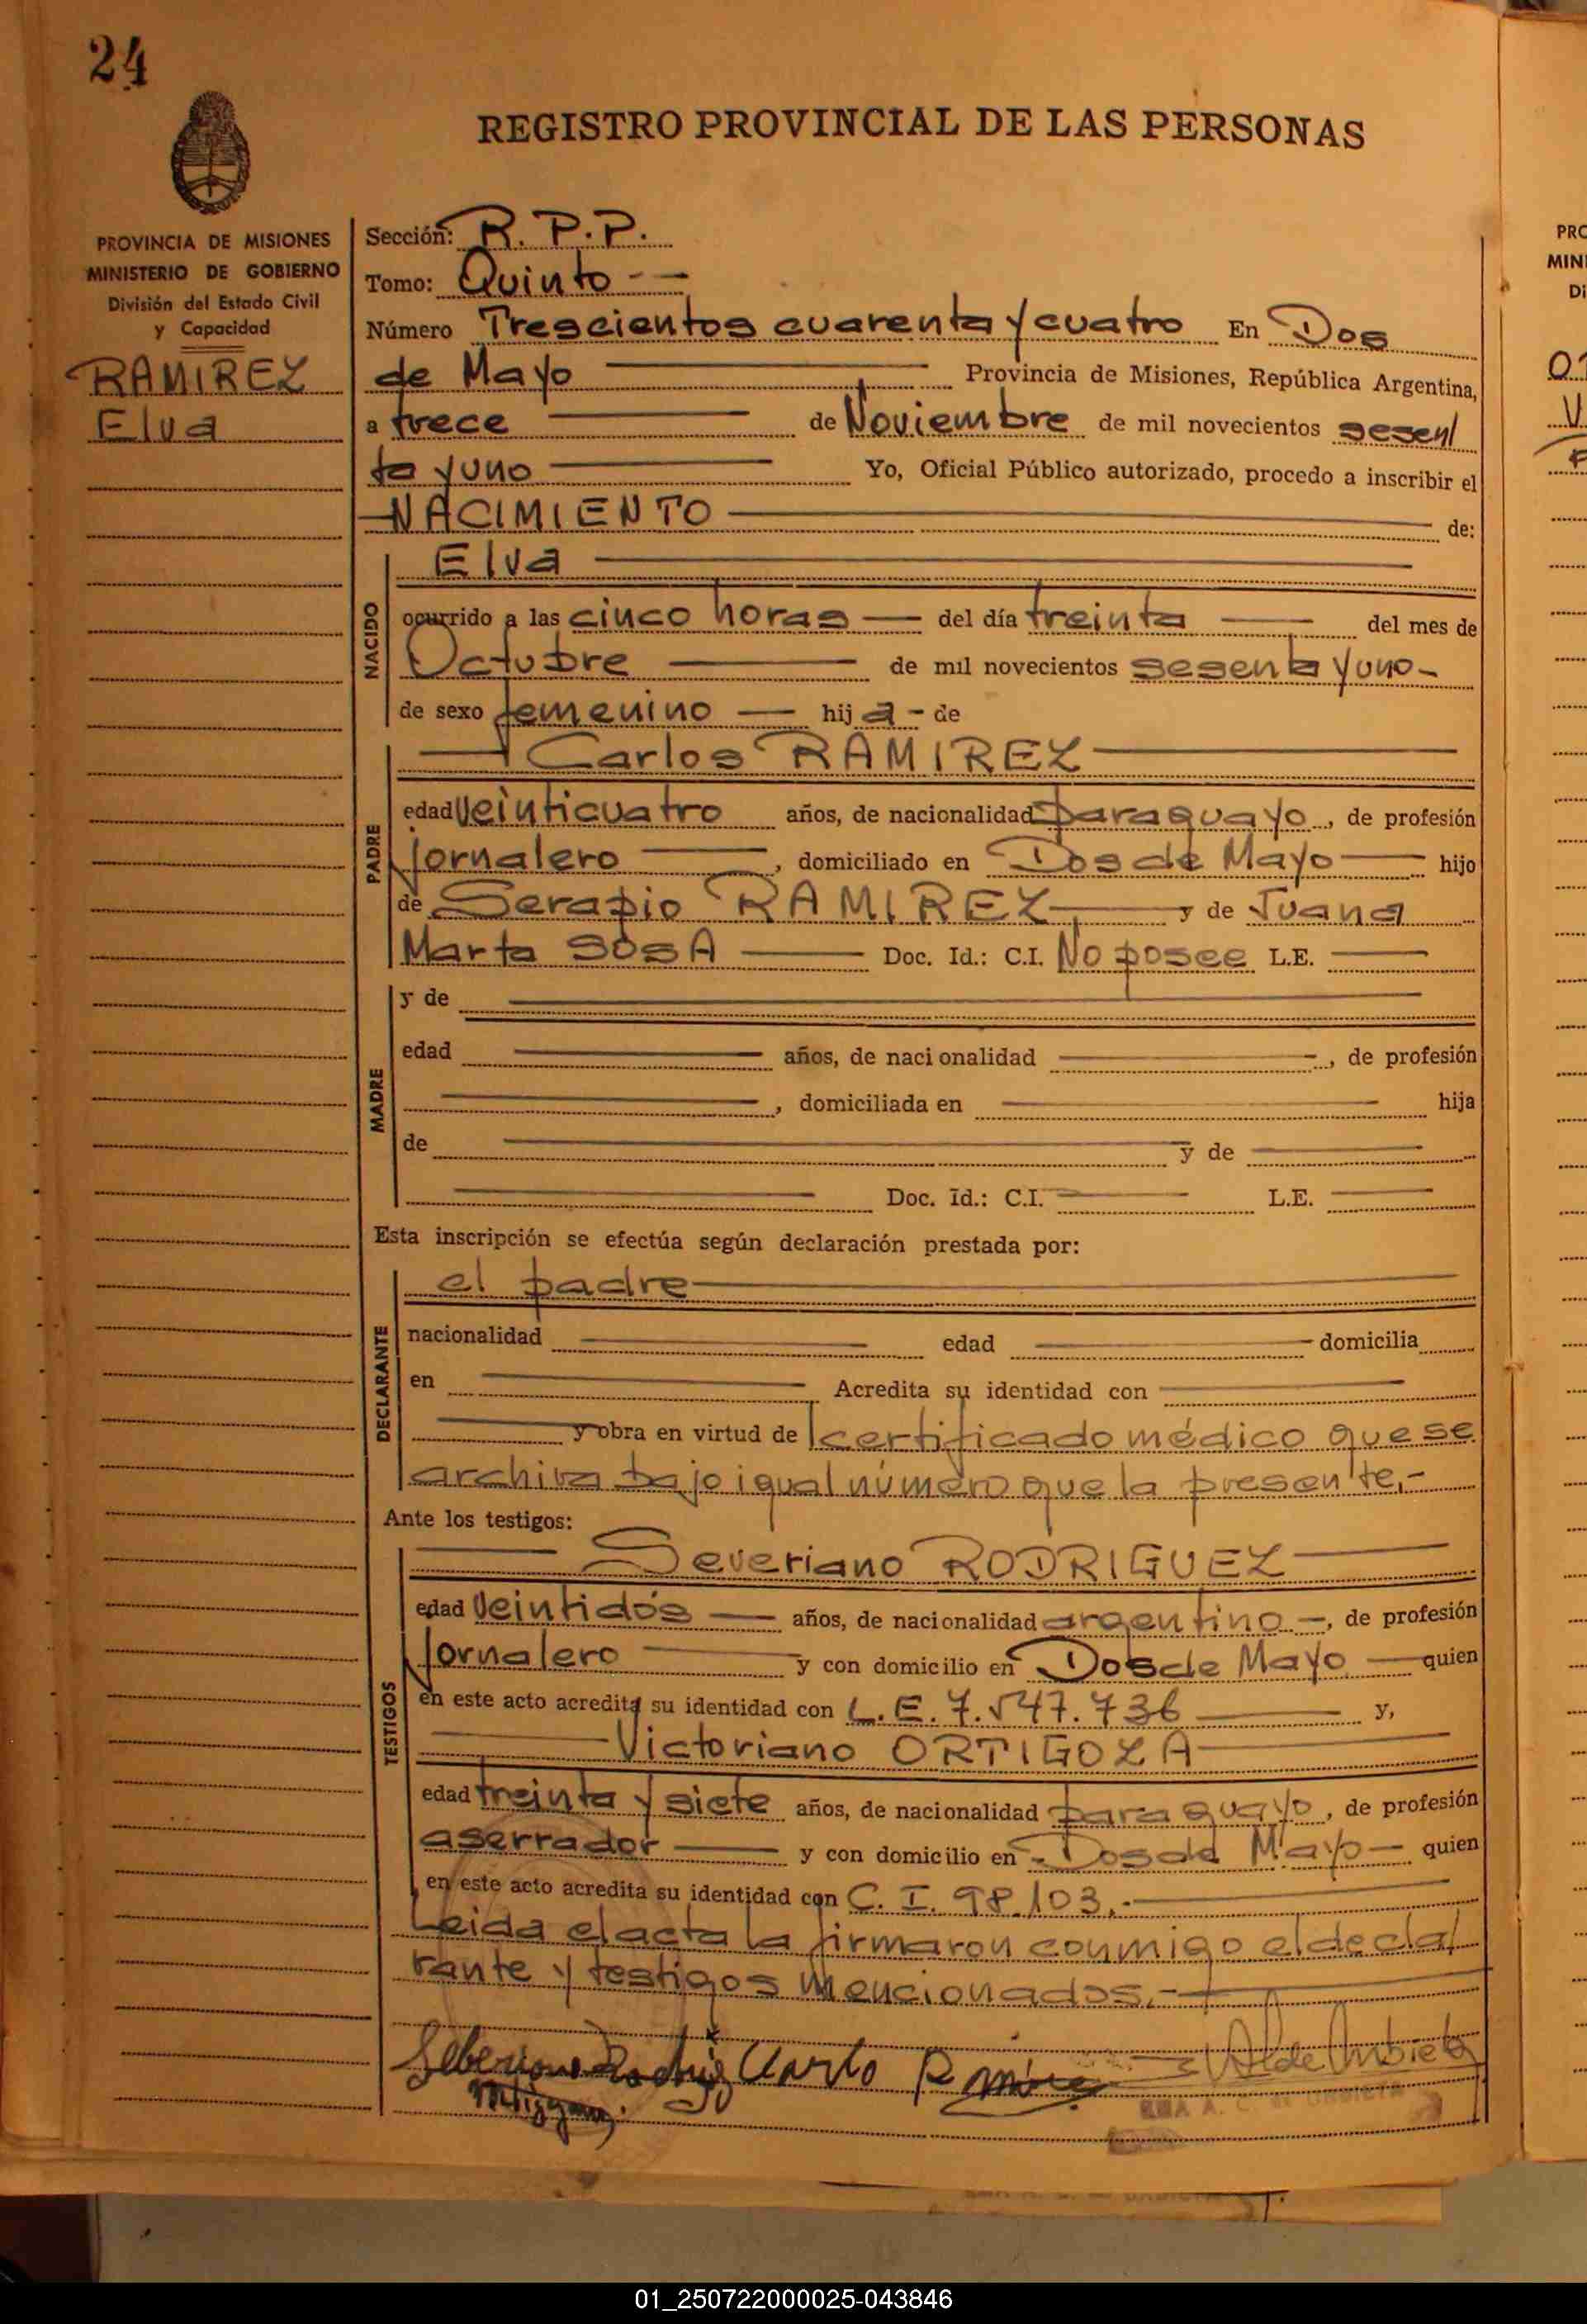 24
REGISTRO PROVINCIAL DE LAS PERSONAS
PROVINCIA DE MISIONES
MINISTERIO DE GOBIERNO
División del Estado Civil
y Capacidad
RAMIREZ
Elva
Sección: R. P. P.
Tomo: Quinto - —
Número Trescientos cuarenta y cuatro En Dos
de Mayo — Provincia de Misiones, República Argentina,
a trece — de Noviembre de mil novecientos sesen/
ta y uno — Yo, Oficial Público autorizado, procedo a inscribir el
NACIMIENTO — de:
NACIDO
Elva —
ocurrido a las cinco horas — del día treinta — del mes de
Octubre — de mil novecientos sesenta y uno -
de sexo femenino — hij a - de
PADRE
— Carlos RAMIREZ —
edad veinticuatro años, de nacionalidad paraguayo, de profesión
jornalero —, domiciliado en Dos de Mayo — hijo
de Serapio RAMIREZ — y de Juana
Marta SOSA — Doc. Id.: C.I. No posee L.E. —
MADRE
y de —
edad — años, de naci onalidad —, de profesión
—, domiciliada en — hija
de — y de —
— Doc. Id.: C.I. — L.E. —
Esta inscripción se efectúa según declaración prestada por:
DECLARANTE
el padre —
nacionalidad — edad — domicilia
en — Acredita su identidad con —
— y obra en virtud de certificado médico que se
archiva bajo igual número que la presente,-
Ante los testigos:
TESTIGOS
— Severiano RODRIGUEZ —
edad veintidós — años, de nacionalidad argentino —, de profesión
jornalero — y con domicilio en Dos de Mayo — quien
en este acto acredita su identidad con L. E. 7.547.736 — y,
— Victoriano ORTIGOZA —
edad treinta y siete años, de nacionalidad paraguayo, de profesión
aserrador — y con domicilio en Dos de Mayo — quien
en este acto acredita su identidad con C. I. 98.103.- —
Leida el acta la firmaron conmigo el decla/
rante y testigos mencionados.- —
Carlo
PRO
MINI
Di
01_250722000025-043846